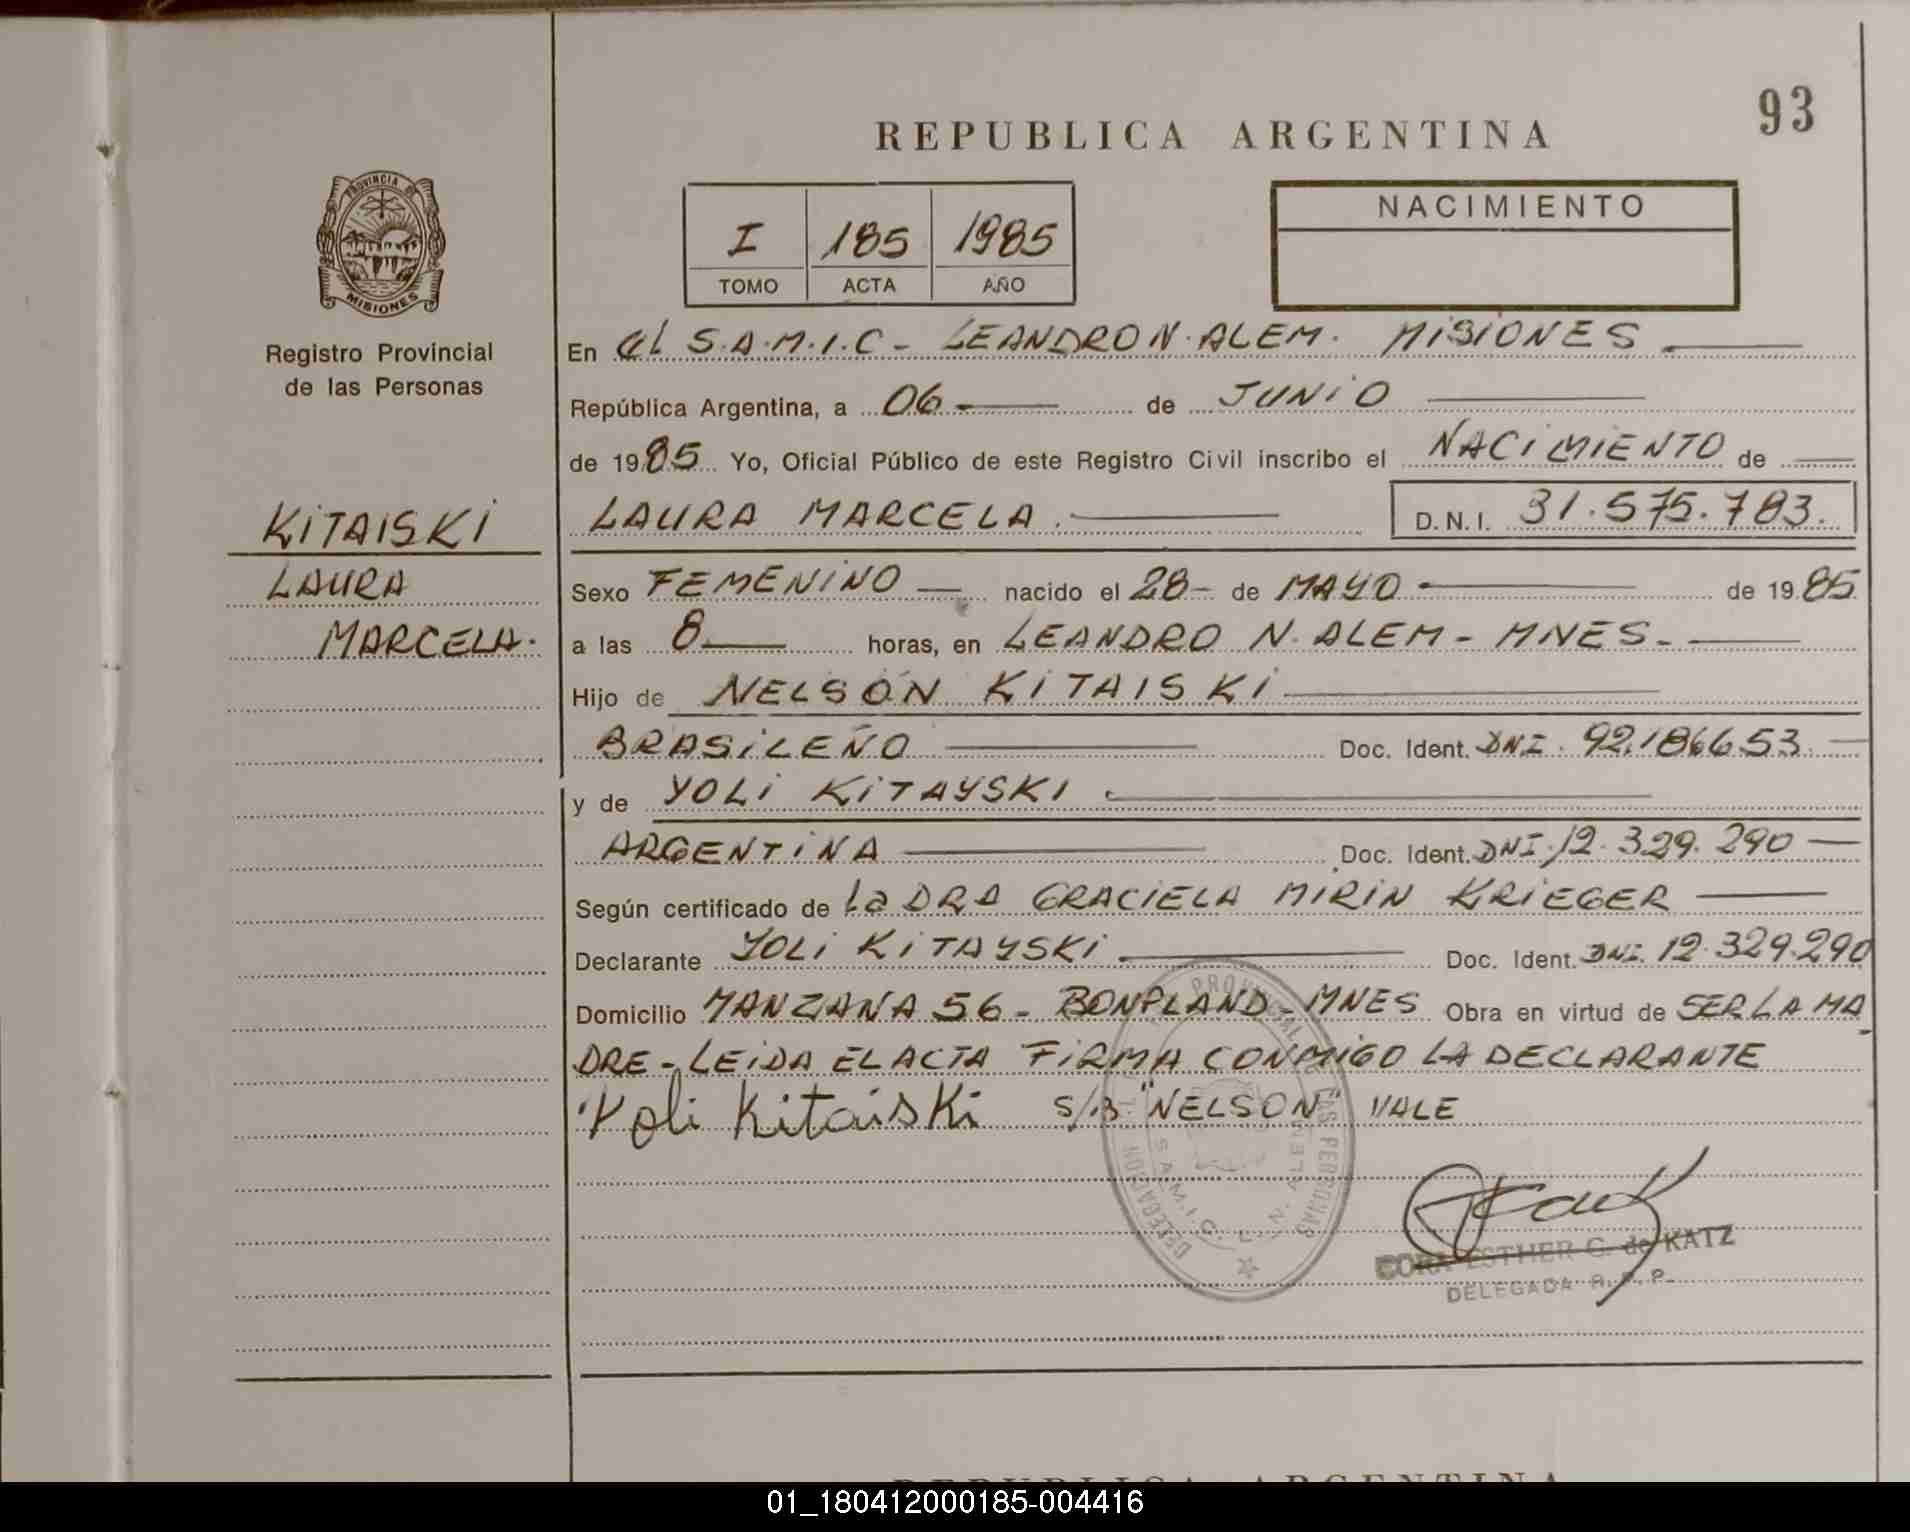 93
REPUBLICA ARGENTINA
PROVINCIA DE
MISIONES
Registro Provincial
de las Personas
I 185 1985
TOMO ACTA AÑO
NACIMIENTO
En el S.A.M.I.C - LEANDRO N. ALEM. MISIONES
República Argentina, a 06 de JUNIO
de 1985 Yo, Oficial Público de este Registro Civil inscribo el NACIMIENTO de
KITAISKI
LAURA
MARCELA.
LAURA MARCELA. D.N.I. 31.575.783.
Sexo FEMENINO nacido el 28 de MAYO de 1985
a las 8 horas, en LEANDRO N. ALEM - MNES.
Hijo de NELSON KITAISKI
BRASILEÑO Doc. Ident. DNI. 92.186653
y de YOLI KITAYSKI
ARGENTINA Doc. Ident. DNI. 12.329.290
Según certificado de la DRA GRACIELA MIRIN KRIEGER
Declarante YOLI KITAYSKI Doc. Ident. DNI. 12.329.290
Domicilio MANZANA 56 - BONPLAND - MNES Obra en virtud de SER LA MA
DRE - LEIDA EL ACTA FIRMA CONMIGO LA DECLARANTE
Yoli Kitaiski S/B "NELSON" VALE
DELEGACION PROVINCIAL LAS PERSONAS
S.A.M.I.C. L. N. ALEM
CORA ESTHER G. de KATZ
DELEGADA R. P. P.
REPUBLICA ARGENTINA
01_180412000185-004416